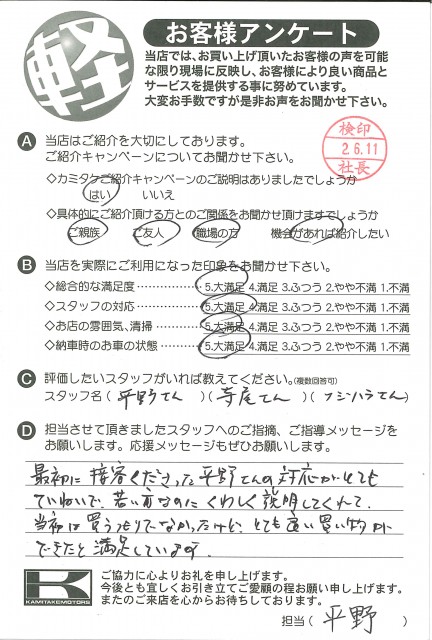 軽
お客様アンケート
当店では、お買い上げ頂いたお客様の声を可能
な限り現場に反映し、お客様により良い商品と
サービスを提供する事に努めています。
大変お手数ですが是非お声をお聞かせ下さい。
検印
2.6.11
社長
A 当店はご紹介を大切にしております。
ご紹介キャンペーンについてお聞かせ下さい。
◇カミタケご紹介キャンペーンのご説明はありましたでしょうか
はい いいえ
◇具体的にご紹介頂ける方とのご関係をお聞かせ頂けますでしょうか
ご親族 ご友人 職場の方 機会があれば紹介したい
B 当店を実際にご利用になった印象をお聞かせ下さい。
◇総合的な満足度…………… 5.大満足 4.満足 3.ふつう 2.やや不満 1.不満
◇スタッフの対応…………… 5.大満足 4.満足 3.ふつう 2.やや不満 1.不満
◇お店の雰囲気、清掃……… 5.大満足 4.満足 3.ふつう 2.やや不満 1.不満
◇納車時のお車の状態……… 5.大満足 4.満足 3.ふつう 2.やや不満 1.不満
C 評価したいスタッフがいれば教えてください。(複数回答可)
スタッフ名( 平野さん )( 寺尾さん )( フジハラさん )
D 担当させて頂きましたスタッフへのご指摘、ご指導メッセージを
お願いします。応援メッセージもぜひお願いします。
最初に接客くださった平野さんの対応がとても
ていねいで、若い方なのにくわしく説明してくれて
当初は買うつもりでなかったけど、とても良い買い物が
できたと満足しています.
K
KAMITAKEMOTORS
ご協力に心よりお礼を申し上げます。
今後とも宜しくお引き立てご愛顧の程お願い申し上げます。
またのご来店を心からお待ちしております。
担当( 平野 )